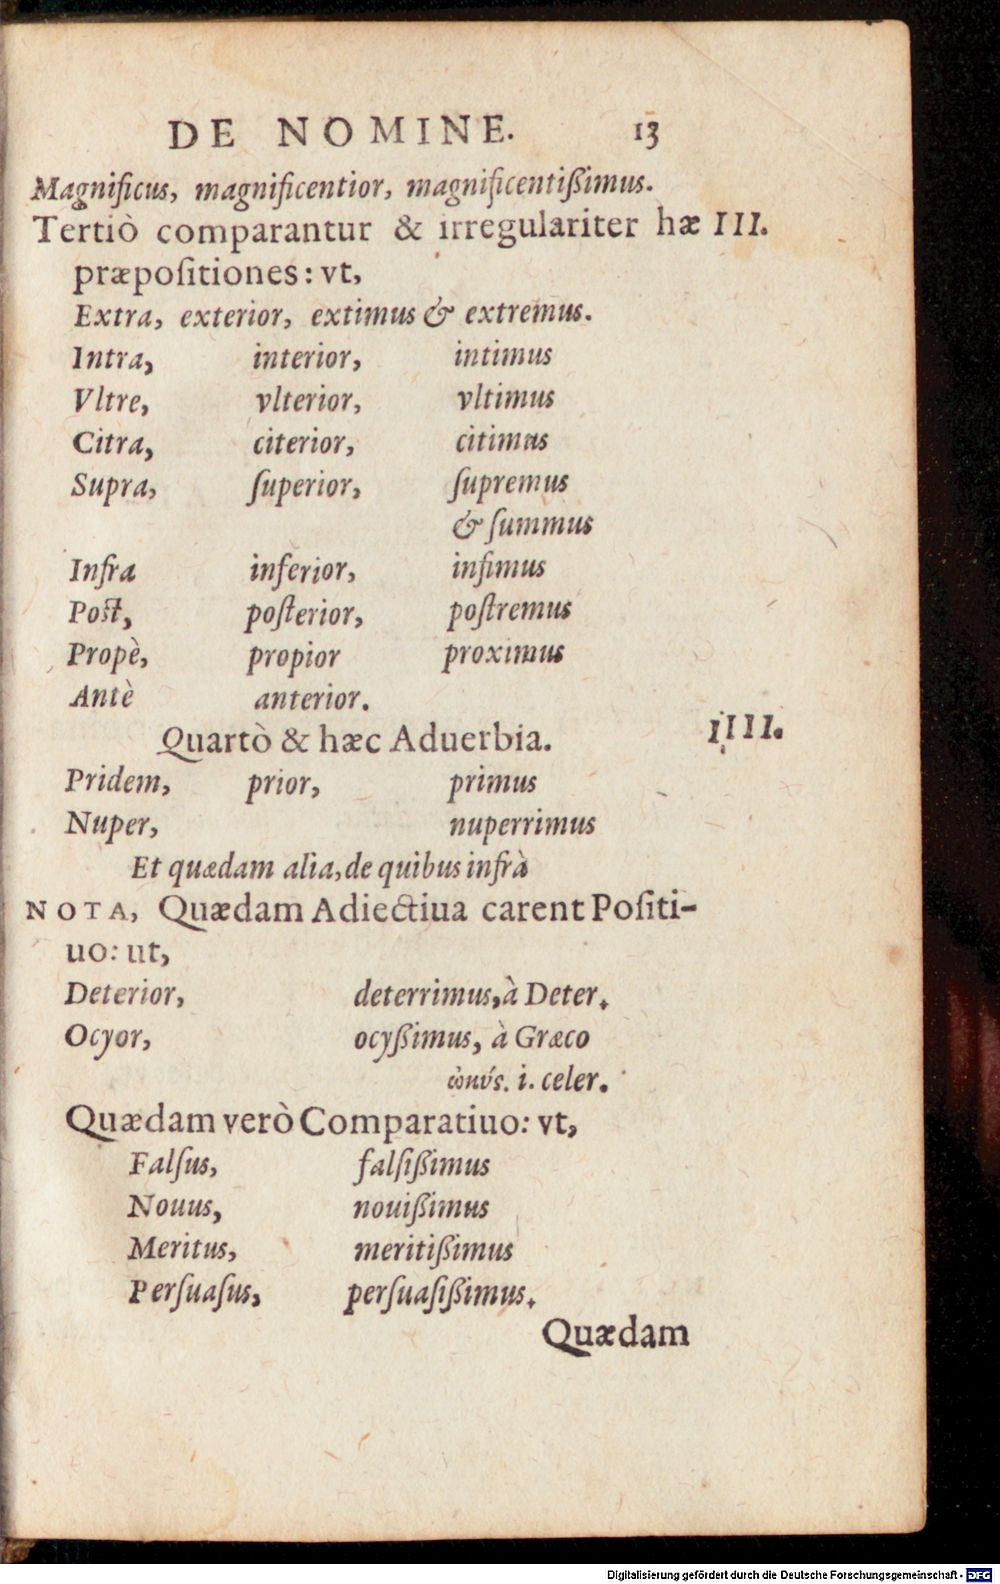 DE NOMINE. 13
Magnificus, magnificentior, magnificentißimus.
Tertiò comparantur & irregulariter hæ III.
præpoſitiones: vt,
Extra, exterior, extimus & extremus.
Intra, interior, intimus
Vltre, vlterior, vltimus
Citra, citerior, citimus
Supra, ſuperior, ſupremus
& ſummus
Infra inferior, infimus
Poſt, poſterior, poſtremus
Propè, propior proximus
Antè anterior.
Quartò & hæc Aduerbia. IIII.
Pridem, prior, primus
Nuper, nuperrimus
Et quædam alia, de quibus infrà
NOTA, Quædam Adiectiua carent Poſiti-
uo: ut,
Deterior, deterrimus, à Deter.
Ocyor, ocyßimus, à Græco
i. celer.
Quædam verò Comparatiuo: vt,
Falſus, falſißimus
Nouus, nouißimus
Meritus, meritißimus
Perſuaſus, perſuaſißimus.
Quædam
Digitalisierung gefördert durch die Deutsche Forschungsgemeinschaft - DFG